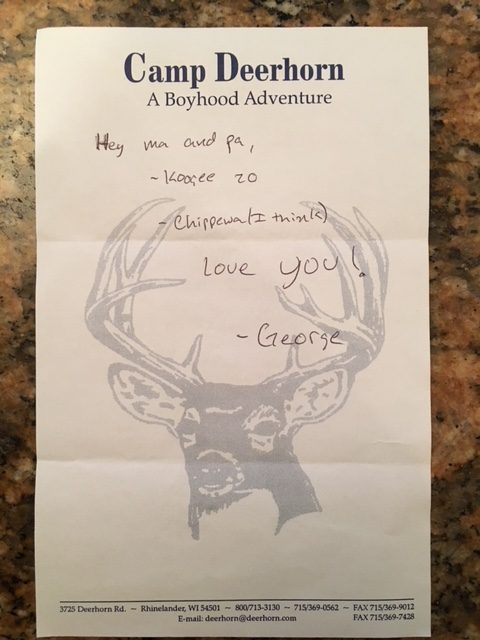 Camp Deerhorn
A Boyhood Adventure
Hey ma and pa,
~Koogee 20
- Chippewa(I think)
Love you!
- George
3725 Deerhorn Rd. ~ Rhinelander, WI 54501 ~ 800/713-3130 ~ 715/369-0562 ~ FAX 715/369-9012
E-mail: deerhorn@deerhorn.com FAX 715/369-7428